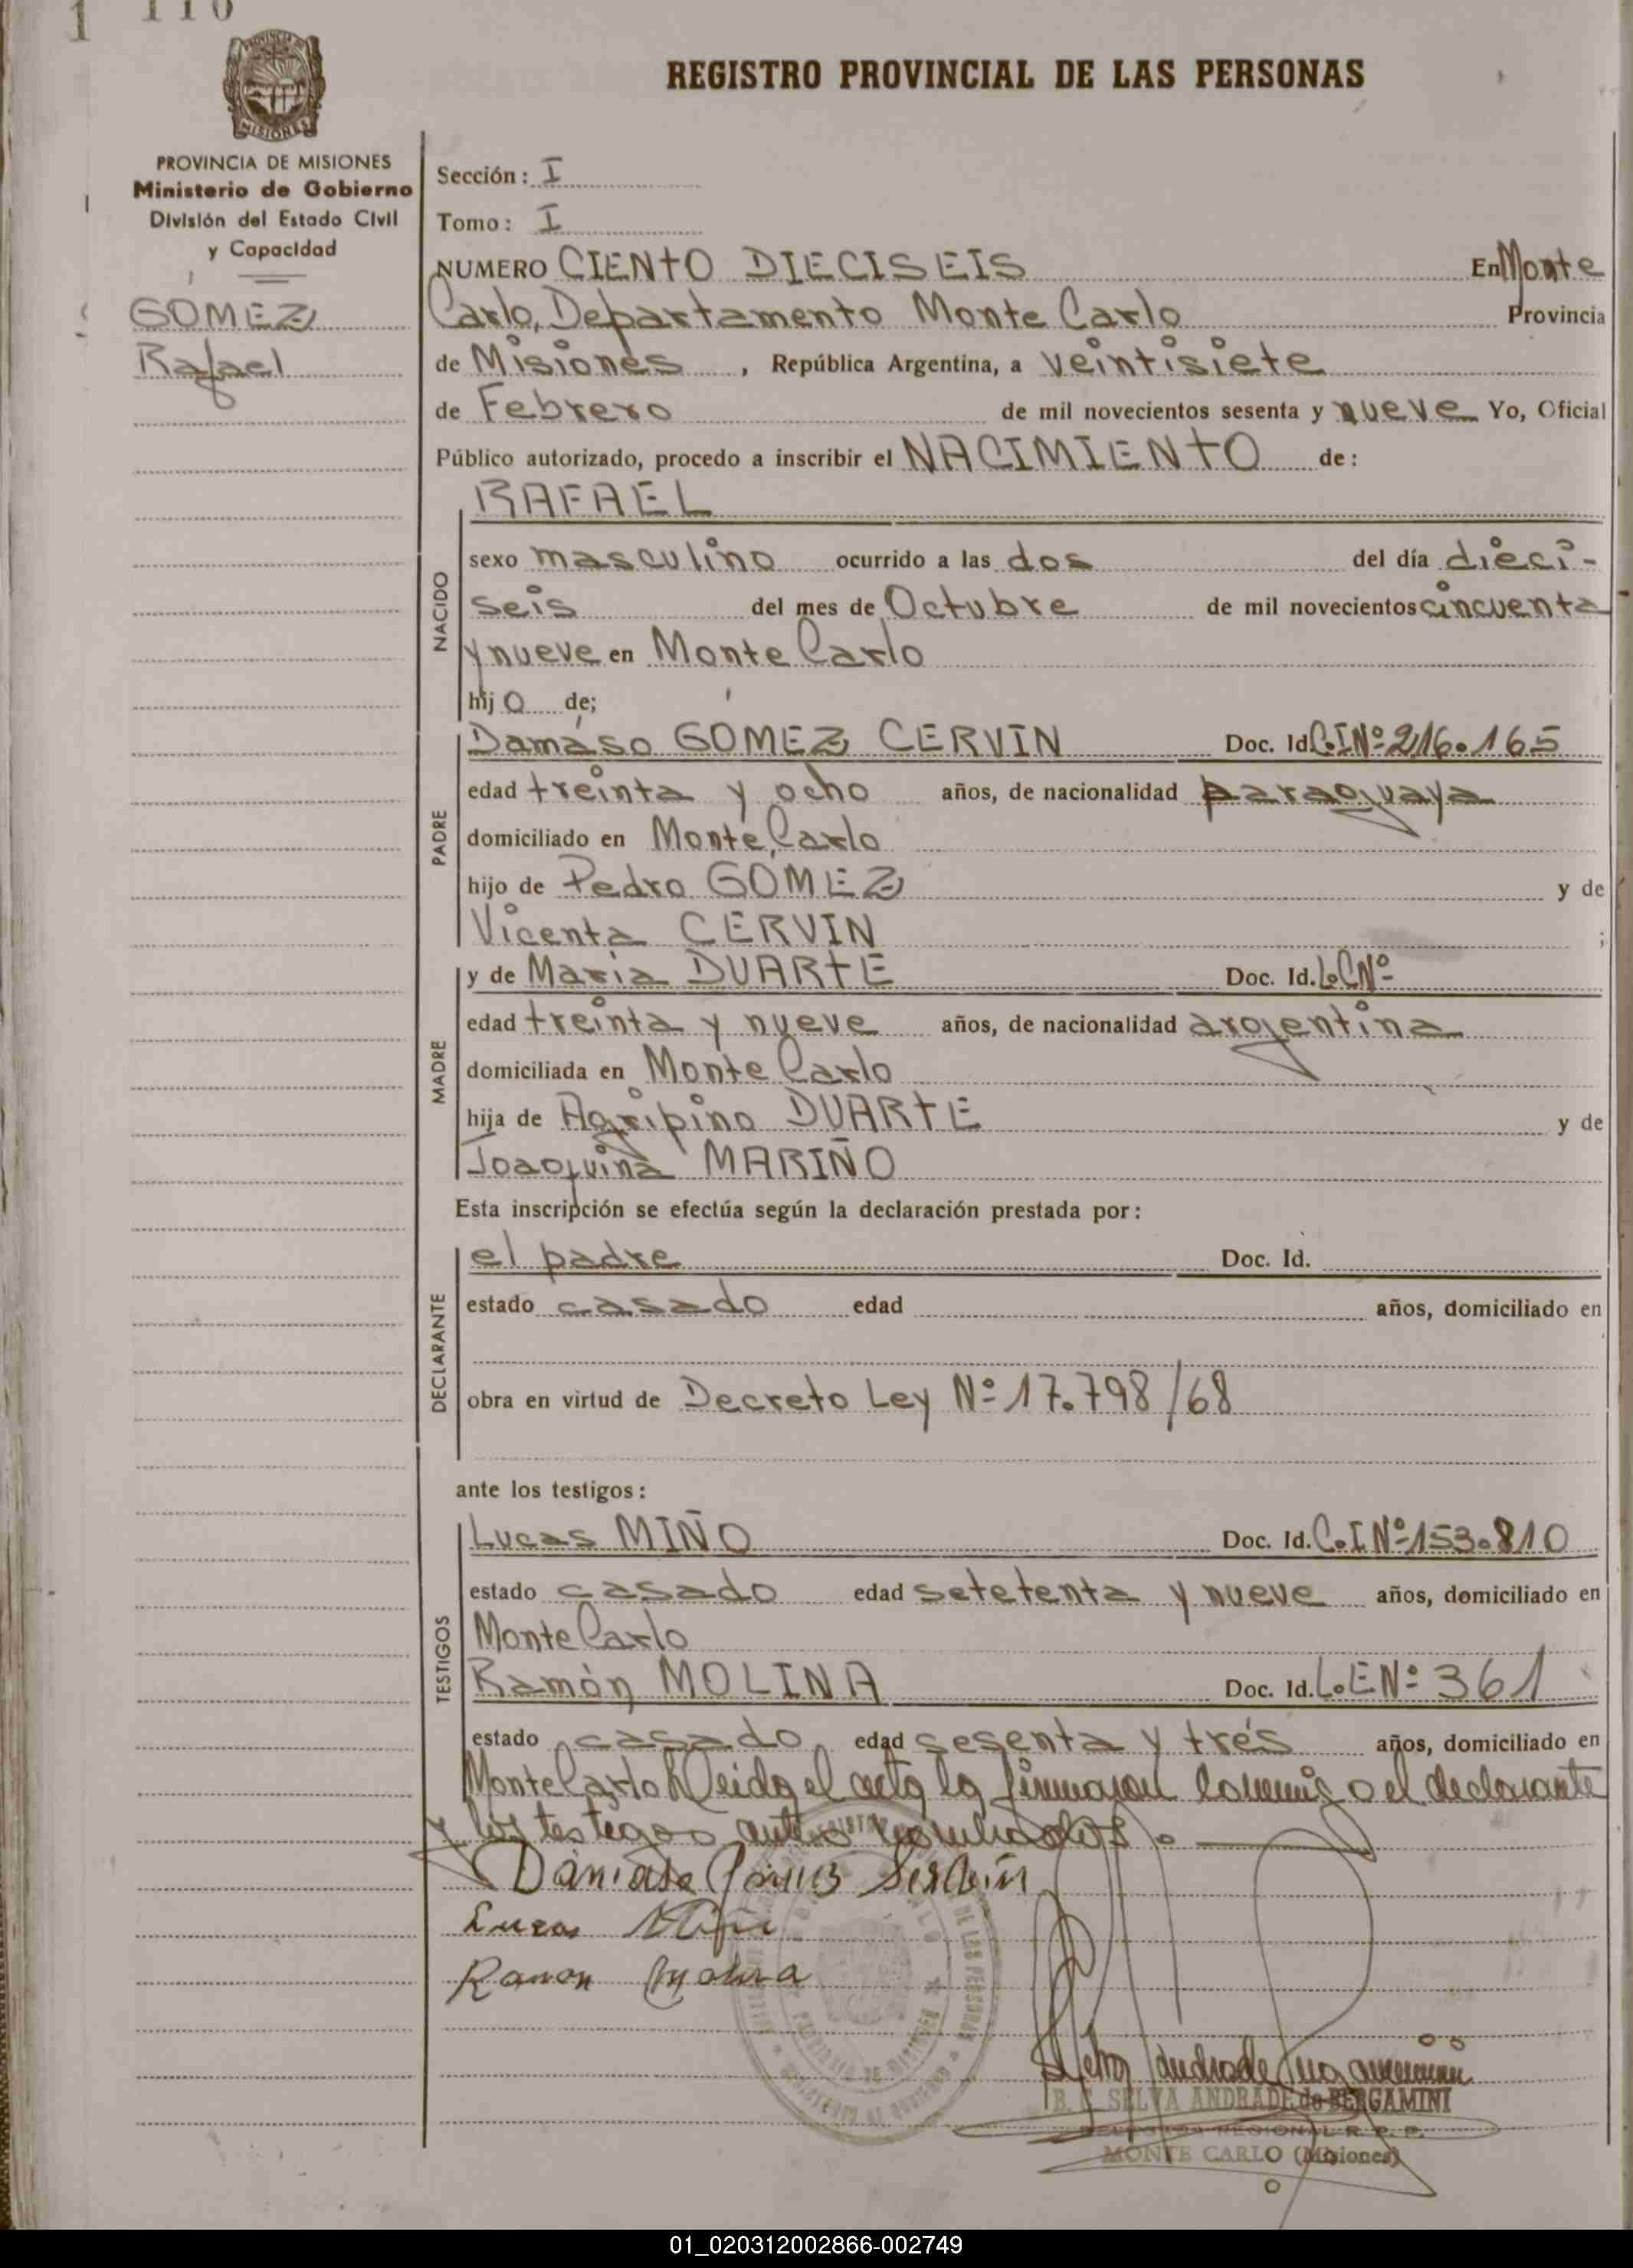 1 110
PROVINCIA DE MISIONES
Ministerio de Gobierno
División del Estado Civil
y Capacidad
GOMEZ
Rafael
REGISTRO PROVINCIAL DE LAS PERSONAS
Sección: I
Tomo: I
NUMERO CIENTO DIECISEIS En Monte
Carlo, Departamento Monte Carlo Provincia
de Misiones, República Argentina, a veintisiete
de Febrero de mil novecientos sesenta y nueve Yo, Oficial
Público autorizado, procedo a inscribir el NACIMIENTO de:
NACIDO
RAFAEL
sexo masculino ocurrido a las dos del día dieci-
seis del mes de Octubre de mil novecientos cincuenta
y nueve en Monte Carlo
hijo de;
PADRE
Damáso GOMEZ CERVIN Doc. Id. C.I Nº 216.165
edad treinta y ocho años, de nacionalidad paraguaya
domiciliado en Monte Carlo
hijo de Pedro GOMEZ y de
Vicenta CERVIN ;
MADRE
y de María DUARTE Doc. Id. L.C Nº
edad treinta y nueve años, de nacionalidad argentina
domiciliada en Monte Carlo
hija de Agripino DUARTE y de
Joaquina MARIÑO
Esta inscripción se efectúa según la declaración prestada por:
DECLARANTE
el padre Doc. Id.
estado casado edad años, domiciliado en
obra en virtud de Decreto Ley Nº 17.798/68
ante los testigos:
TESTIGOS
Lucas MIÑO Doc. Id. C.I Nº 153.810
estado casado edad setetenta y nueve años, domiciliado en
Monte Carlo
Ramón MOLINA Doc. Id. L.E Nº 361
estado casado edad sesenta y trés años, domiciliado en
Monte Carlo Leida el acta la firmaron conmigo el declarante
y los testigos antes nombrados.
Damaso Gomez Serbin
Lucas Miño
Ramon Molina
B. C. SELVA ANDRADE de BERGAMINI
MONTE CARLO (Misiones)
01_020312002866-002749